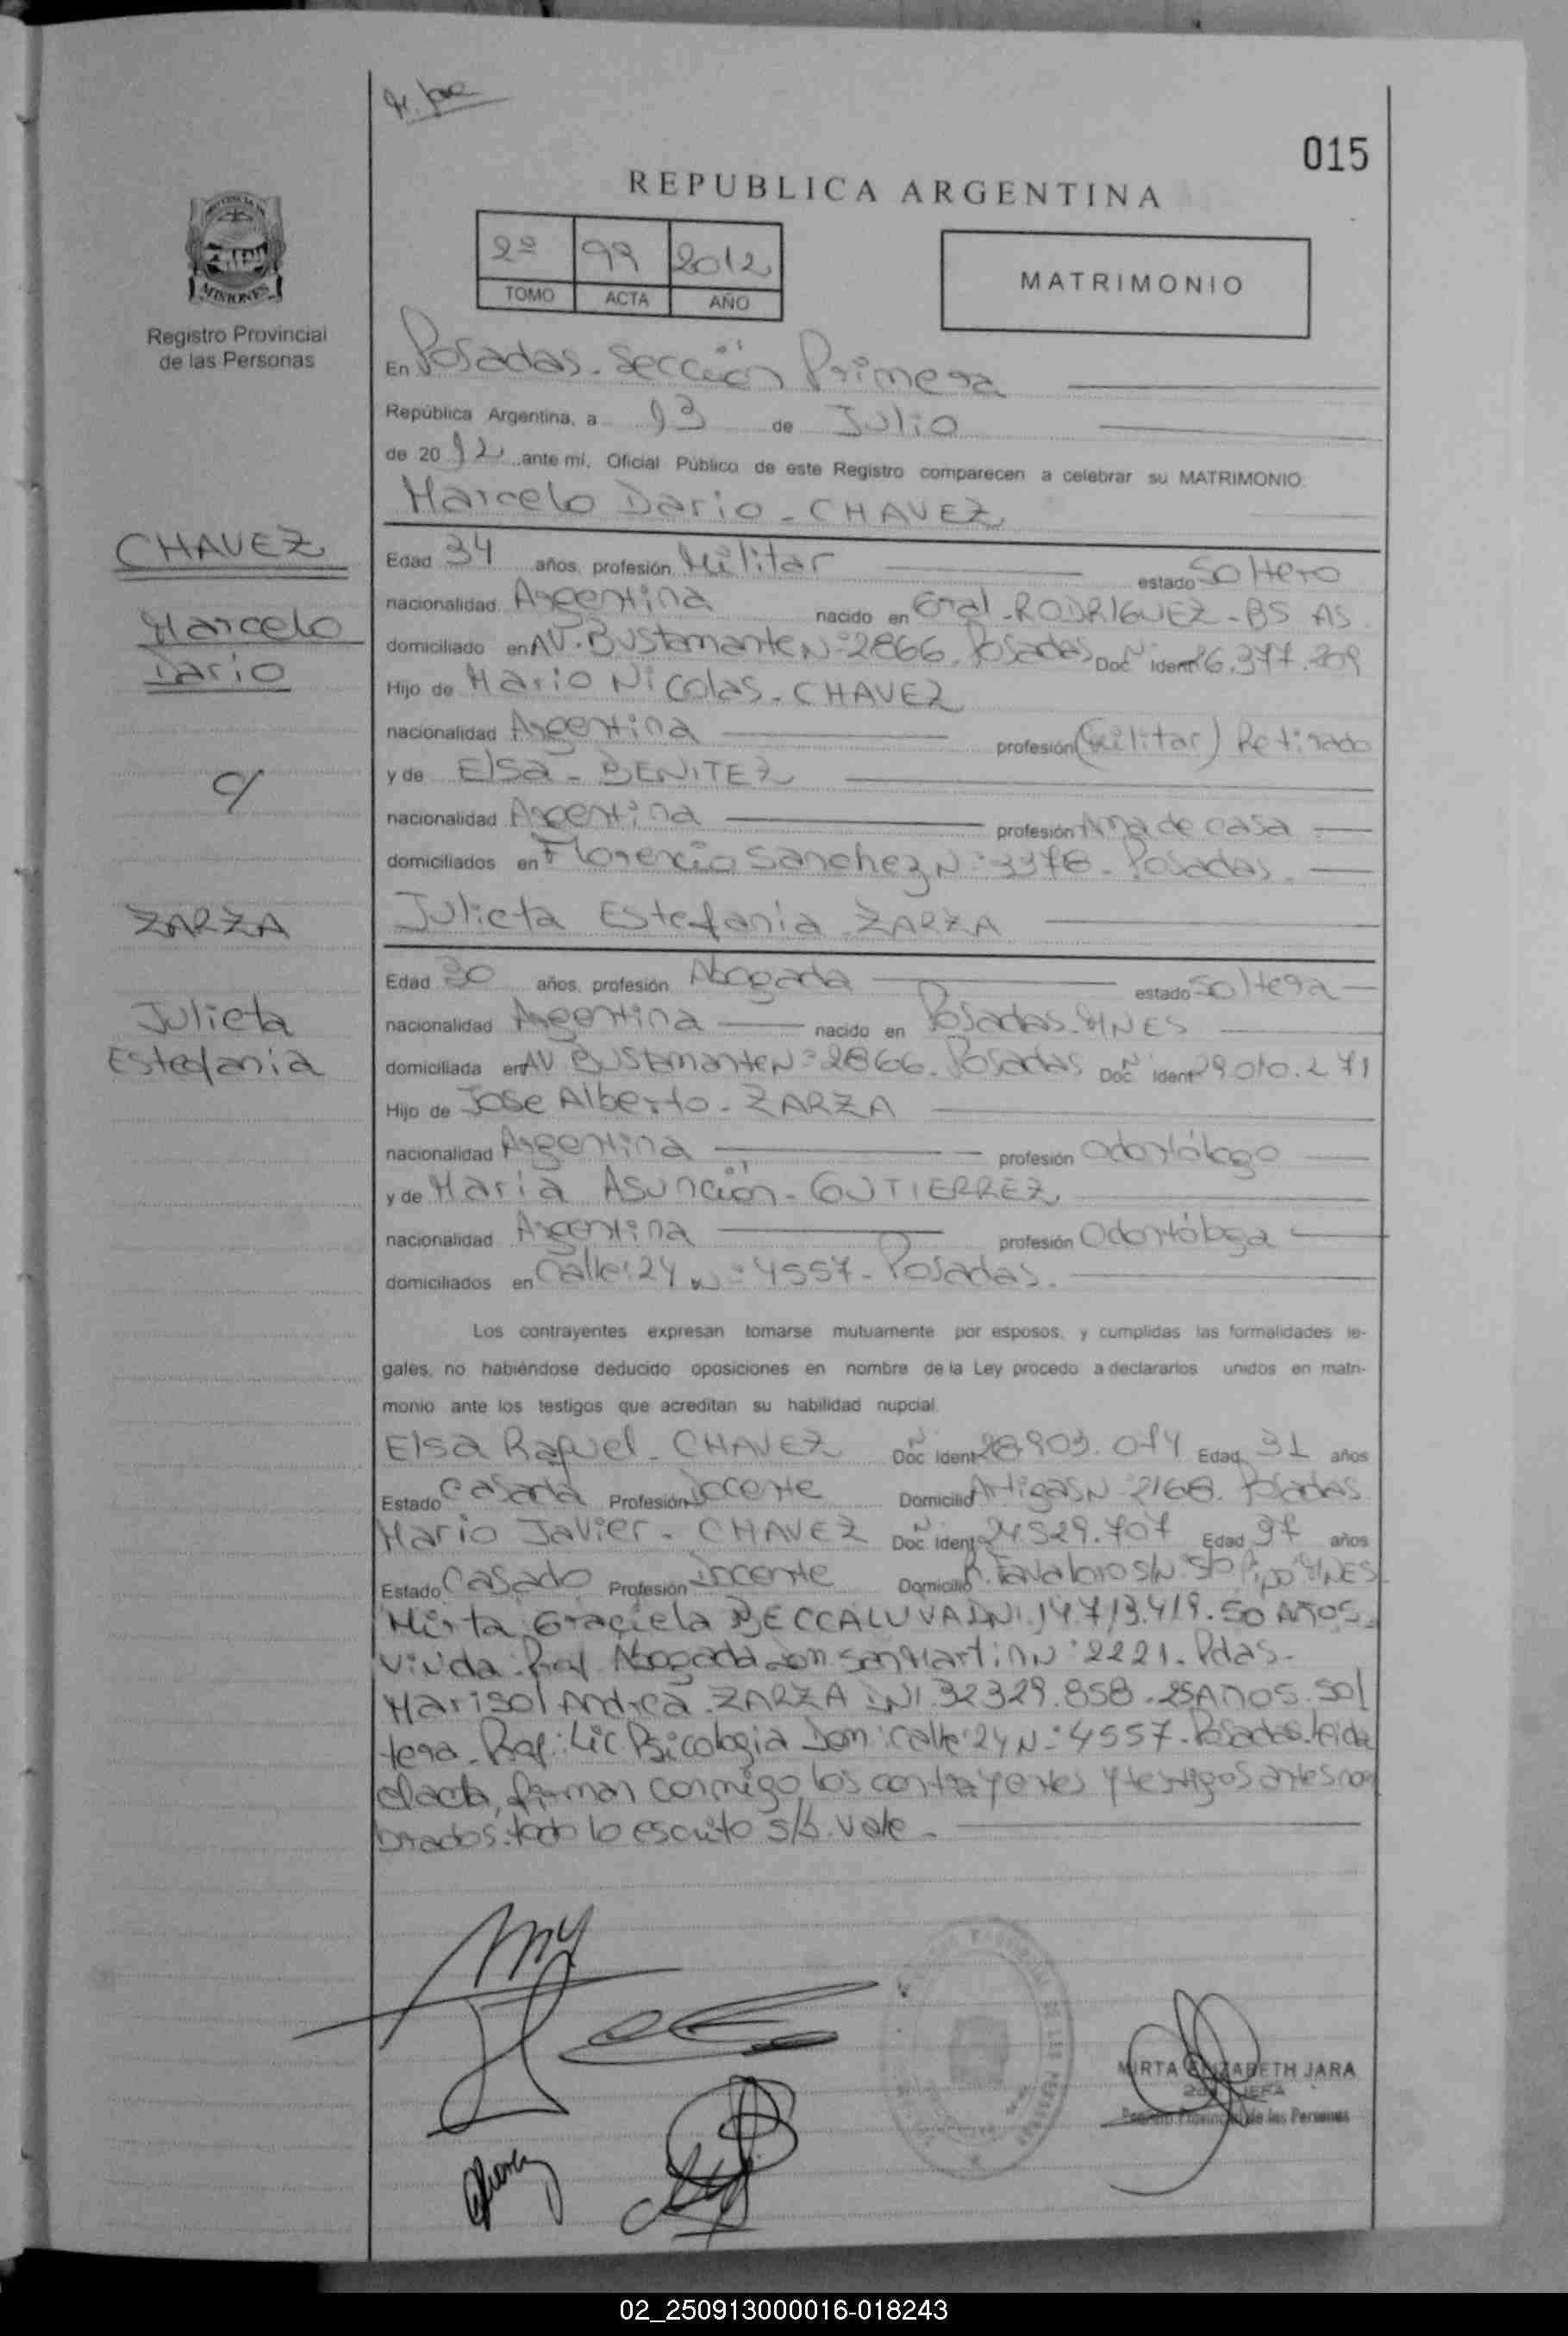 015
REPUBLICA ARGENTINA
2º 99 2012
TOMO ACTA AÑO
MATRIMONIO
MISIONES
Registro Provincial
de las Personas
En Posadas. Sección Primera
República Argentina, a 13 de Julio
de 2012 ante mí, Oficial Público de este Registro comparecen a celebrar su MATRIMONIO:
Marcelo Dario - CHAVEZ
CHAVEZ
Marcelo
Dario
c/
ZARZA
Julieta
Estefania
Edad 34 años, profesión Militar estado Soltero
nacionalidad Argentina nacido en Gral - RODRIGUEZ - BS AS.
domiciliado en AV. Bustamante Nº 2866. Posadas Doc. Ident. 26.377.209
Hijo de Mario Nicolas - CHAVEZ
nacionalidad Argentina profesión (Militar) Retirado
y de Elsa - BENITEZ
nacionalidad Argentina profesión Ama de casa
domiciliados en Florencio Sanchez Nº 3378 - Posadas.
Julieta Estefania ZARZA
Edad 30 años, profesión Abogada estado Soltera
nacionalidad Argentina nacido en Posadas - MNES
domiciliada en AV Bustamante Nº 2866. Posadas Doc. Ident. 29.010.271
Hijo de Jose Alberto - ZARZA
nacionalidad Argentina profesión Odontólogo
y de María Asunción - GUTIERREZ
nacionalidad Argentina profesión Odontóloga
domiciliados en Calle: 24 Nº 4557 - Posadas.
Los contrayentes expresan tomarse mutuamente por esposos, y cumplidas las formalidades le-
gales, no habiéndose deducido oposiciones en nombre de la Ley procedo a declararlos unidos en matri-
monio ante los testigos que acreditan su habilidad nupcial.
Elsa Raquel - CHAVEZ Doc. Ident. 28.903.014 Edad 31 años
Estado Casada Profesión Docente Domicilio Artigas Nº 2168. Posadas
Mario Javier - CHAVEZ Doc. Ident. 24.529.707 Edad 37 años
Estado Casado Profesión Docente Domicilio Favaloro S/N. MNES
Mirta Graciela BECCALUVA DNI. 14.713.419. 50 Años.
Viuda. Prof. Abogada Dom San Martin Nº 2221. Pdas.
Marisol Andrea ZARZA DNI. 32329.858. 25 Años. Sol
tera. Prof: Lic. Psicologia Dom: Calle: 24 Nº 4557 - Posadas. leida
el acta, firman conmigo, los contrayentes y testigos antes nom
brados. todo lo escrito s/b. vale -
MIRTA ELIZABETH JARA
JEFA
Registro Provincial de las Personas
02_250913000016-018243